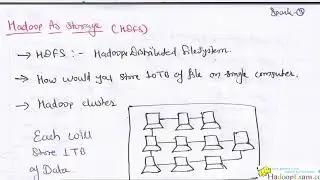 Spark-①
Hadoop As Storage (HDFS)
→ HDFS :- Hadoop Distributed FileSystem.
→ How would you store 10TB of file on single computer.
→ Hadoop cluster
Each will
Store 1TB
of Data
HadoopExam.co